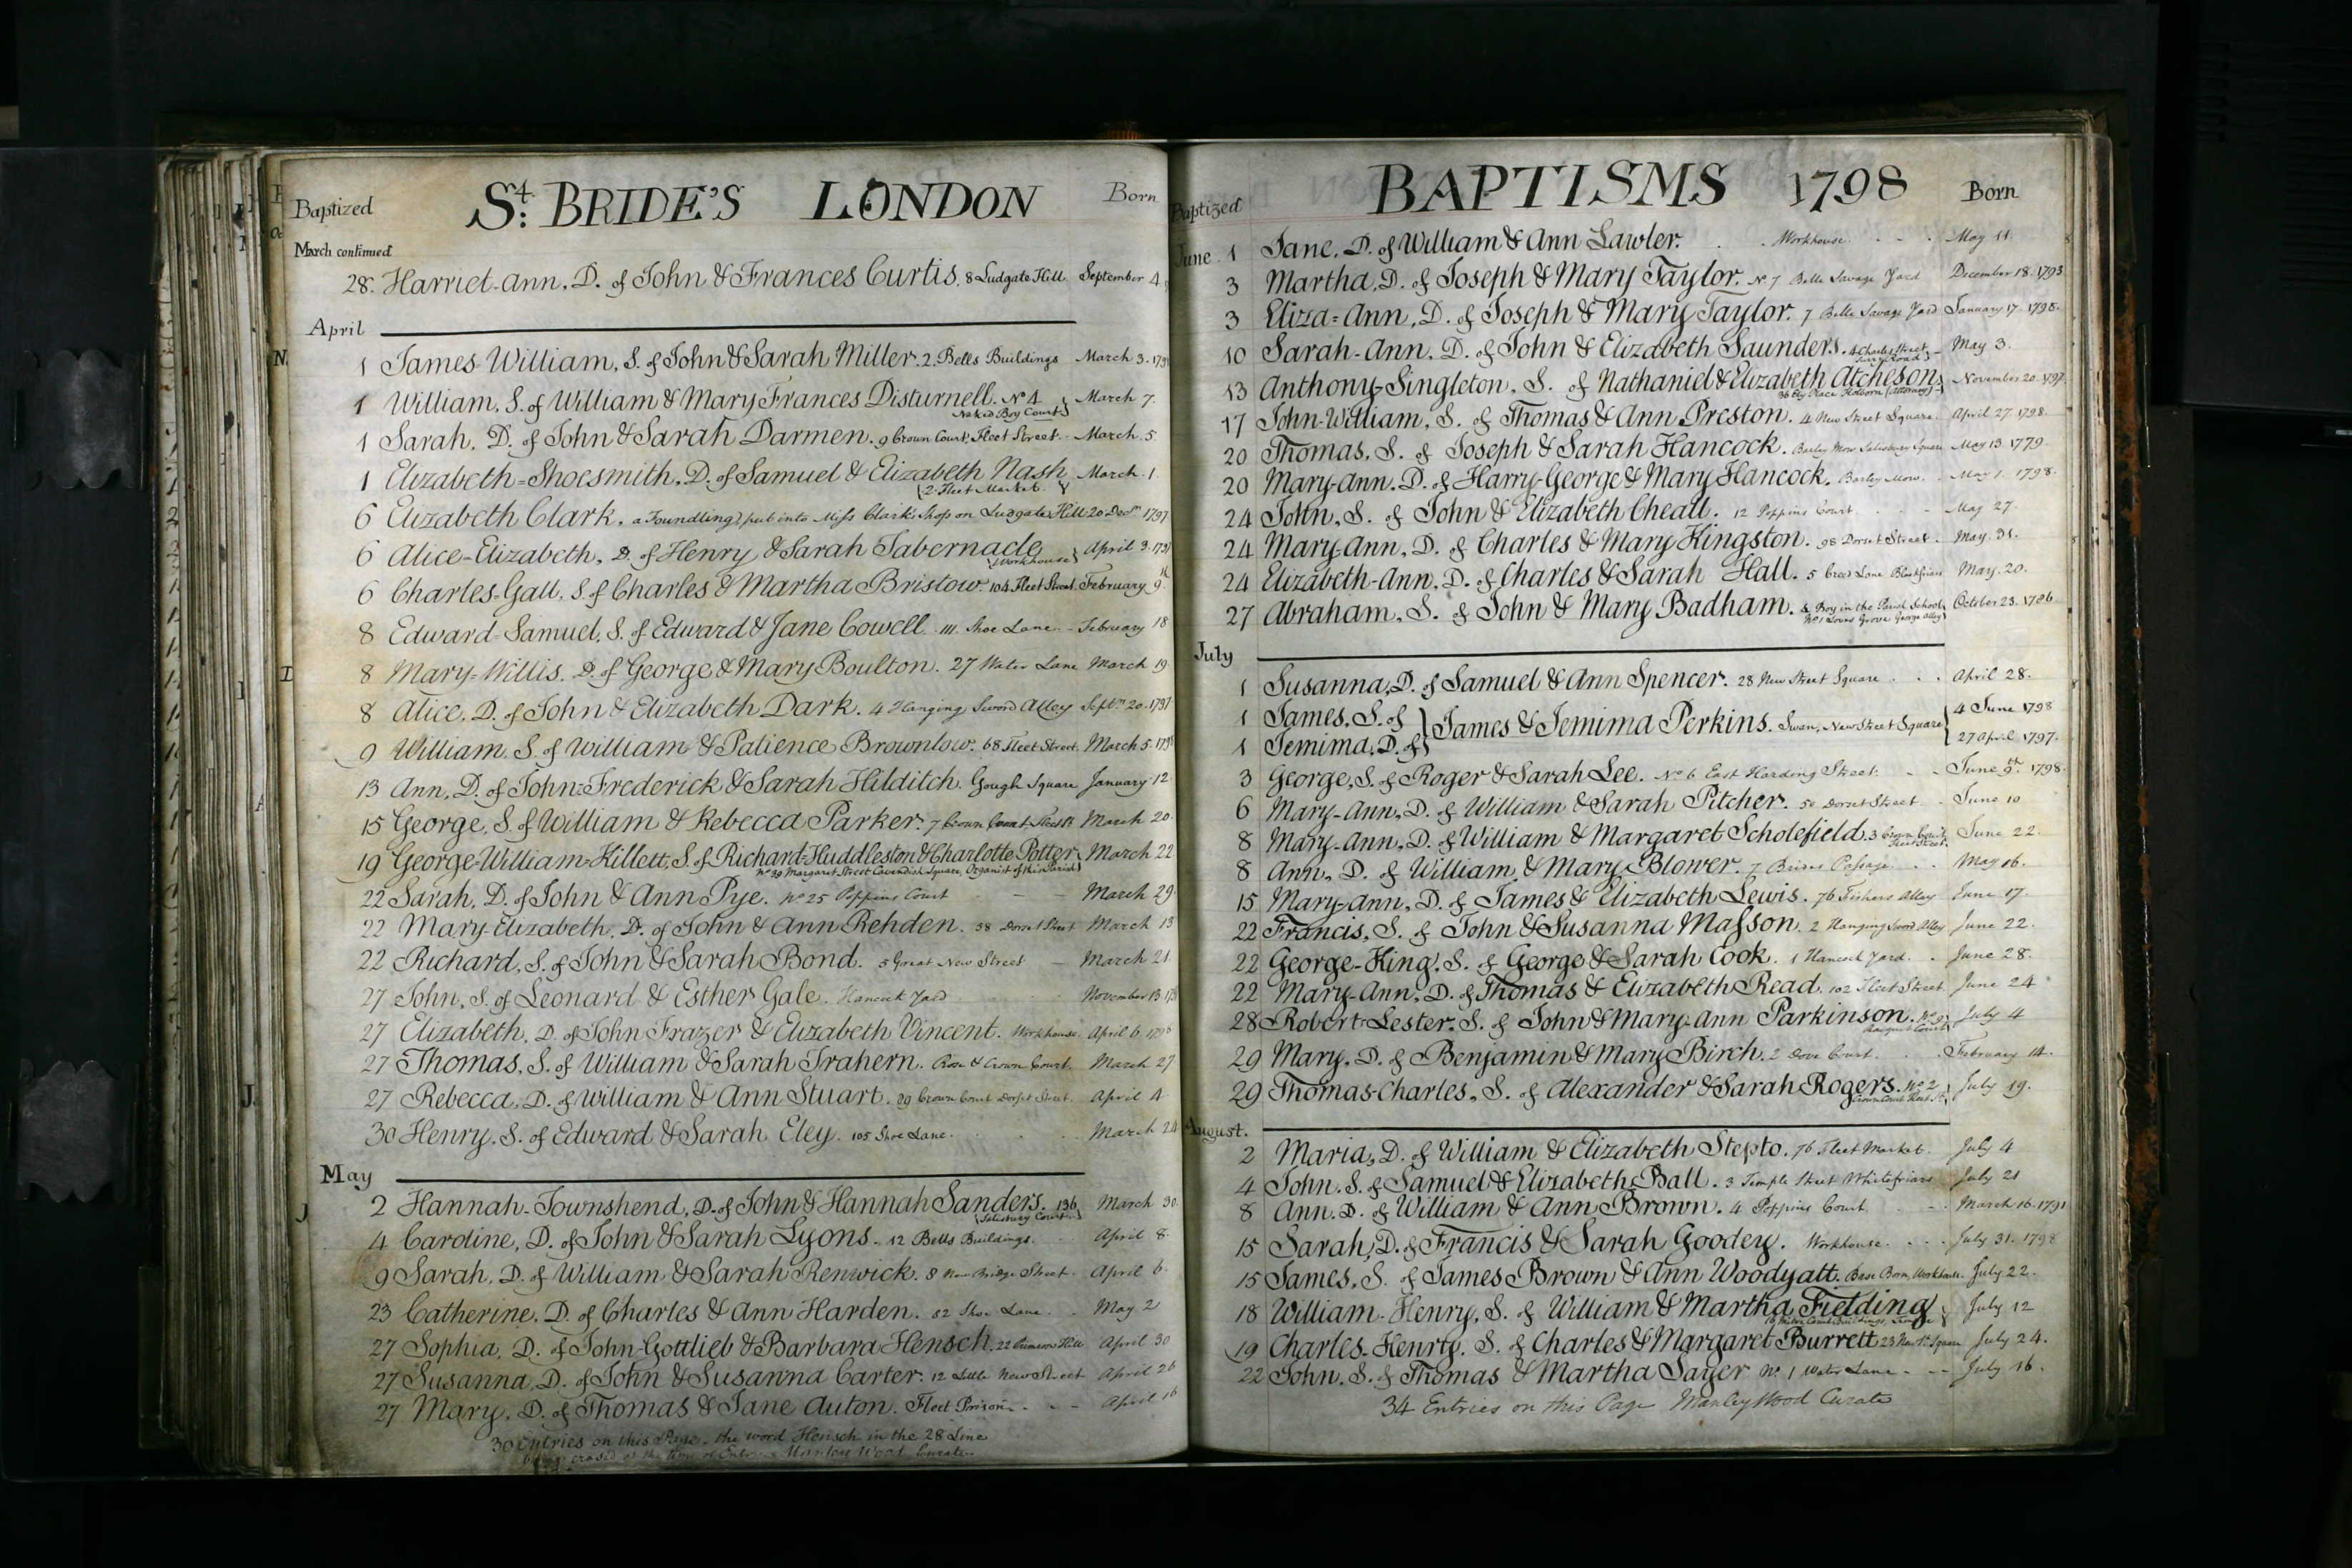 Baptized St. BRIDE'S LONDON Born
March continued
28. Harriet-Ann, D. of John & Frances Curtis. 8 Ludgate Hill. September 4
April
1 James William, S. of John & Sarah Miller. 2. Bells Buildings March 3. 179
1 William, S. of William & Mary Frances Disturnell. No 4 March 7.
Naked Boy Court
1 Sarah, D. of John & Sarah Darmen. 9 Crown Court, Fleet Street. March 5
1 Elizabeth=Shoesmith, D. of Samuel & Elizabeth Nash March 1
2 Fleet Market
6 Elizabeth Clark. a Foundling, put into Miss Clark's Shop on Ludgate Hill 20 Decr. 1797
6 Alice-Elizabeth, D. of Henry & Sarah Tabernacle April 3. 179
Workhouse
6 Charles-Gall, S. of Charles & Martha Bristow. 104 Fleet Street. February 9th
8 Edward-Samuel, S. of Edward & Jane Cowell. 111. Shoe Lane. - February 18
8 Mary=Willis. D. of George & Mary Boulton. 27 Water Lane March 19
8 Alice, D. of John & Elizabeth Dark. 4 Hanging Sword Alley Septr. 20. 1797
9 William. S. of William & Patience Brownlow. 68 Fleet Street. March 5. 179
13 Ann, D. of John=Frederick & Sarah Hilditch. Gough Square January 12
15 George, S. of William & Rebecca Parker. 7 Crown Court Fleet St March 20
19 George-William=Killett, S. of Richard-Huddleston & Charlotte Potter March 22
No 39 Margaret Street Cavendish Square, Organist of this Parish
22 Sarah, D. of John & Ann Pye. No 25 Poppins Court - - March 29
22 Mary-Elizabeth, D. of John & Ann Rehden. 38 Dorset Street March 13
22 Richard, S. of John & Sarah Bond. 5 Great New Street - March 21
27 John, S. of Leonard & Esther Gale. Hancock Yard November 13. 179
27 Elizabeth, D. of John Frazer & Elizabeth Vincent. Workhouse. April 6. 179
27 Thomas, S. of William & Sarah Trahern. Rose & Crown Court. March 27
27 Rebecca, D. of William & Ann Stuart. 29 Crown Court Dorset Street. April 4
30 Henry. S. of Edward & Sarah Eley. 105 Shoe Lane. March 24
May
2 Hannah-Townshend, D. of John & Hannah Sanders. 136 March 30
Salisbury Court
4 Caroline, D. of John & Sarah Lyons. 12 Bells Buildings. April 8
9 Sarah, D. of William & Sarah Renwick. 8 New Bridge Street. April 6
23 Catherine, D. of Charles & Ann Harden. 52 Shoe Lane. May 2
27 Sophia, D. of John-Gottlieb & Barbara Hensch. 22 Hill April 30
27 Susanna, D. of John & Susanna Carter. 12 Little New Street April 26
27 Mary, D. of Thomas & Jane Auton. Fleet Prison. - - April 16
30 Entries on this Page. the word Hensch in the 28 Line
being erased at the time of Manley Wood Curate
Baptized BAPTISMS 1798 Born
June 1 Jane, D. of William & Ann Lawler. Workhouse. May 11.
3 Martha, D. of Joseph & Mary Taylor. No 7 Belle Savage Yard December 18. 1793
3 Eliza=Ann, D. of Joseph & Mary Taylor. 7 Belle Savage Yard January 17. 1798.
10 Sarah-Ann. D. of John & Elizabeth Saunders. 4 Charles Street May 3.
Surry Road
13 Anthony-Singleton, S. of Nathaniel & Elizabeth Atcheson November 20. 1797.
36 Ely Place Holborn (Attorney)
17 John-William, S. of Thomas & Ann Preston. 4 New Street Square. April 27 1798.
20 Thomas, S. of Joseph & Sarah Hancock. Barley Mow Salisbury Square May 13 1779
20 Mary-Ann. D. of Harry-George & Mary Hancock. Barley Mow. May 1. 1798.
24 John, S. of John & Elizabeth Cheall. 12 Poppins Court May 27
24 Mary-Ann, D. of Charles & Mary Kingston. 98 Dorset Street. May. 31.
24 Elizabeth-Ann, D. of Charles & Sarah Hall. 5 Creed Lane Blackfriars May. 20.
27 Abraham, S. of John & Mary Badham. a Boy in the Parish School October 23. 1786
No 1 Grove George Alley
July
1 Susanna, D. of Samuel & Ann Spencer. 28 New Street Square April 28.
1 James, S. of } James & Jemima Perkins. Swan, New Street Square { 4 June 1798
1 Jemima, D. of 27 April 1797.
3 George, S. of Roger & Sarah Lee. No 6 East Harding Street. - - June 9th. 1798.
6 Mary-Ann, D. of William & Sarah Pitcher. 50 Dorset Street. June 10
8 Mary-Ann, D. of William & Margaret Scholefield. 3 Crown Court June 22.
Fleet Street
8 Ann, D. of William & Mary Blower. 7 Brides Passage May 16.
15 Mary-Ann, D. of James & Elizabeth Lewis. 76 Fishers Alley June 17.
22 Francis, S. of John & Susanna Masson. 2 Hanging Sword Alley June 22.
22 George-King, S. of George & Sarah Cook. 1 Hancock Yard. June 28.
22 Mary-Ann, D. of Thomas & Elizabeth Read. 102 Fleet Street June 24
28 Robert-Lester. S. of John & Mary-Ann Parkinson. No 9 July 4
Racquet Court
29 Mary, D. of Benjamin & Mary Birch. 2 Dove Court. February 14.
29 Thomas-Charles, S. of Alexander & Sarah Rogers. No 2 July 19.
Crown Court Fleet St
August.
2 Maria, D. of William & Elizabeth Stepto. 76 Fleet Market. July 4
4 John. S. of Samuel & Elizabeth Ball. 3 Temple Street Whitefriars July 21
8 Ann. D. of William & Ann Brown. 4 Poppins Court March 16. 1791
15 Sarah, D. of Francis & Sarah Goodey. Workhouse. July 31. 1798
15 James, S. of James Brown & Ann Woodyatt. Base Born, Workhouse. July 22.
18 William-Henry, S. of William & Martha Fielding July 12
19 Charles-Henry. S. of Charles & Margaret Burrett 23 New St. Square July 24.
22 John. S. of Thomas & Martha Sayer No. 1 Water Lane - - July 16.
34 Entries on this Page Manley Wood Curate